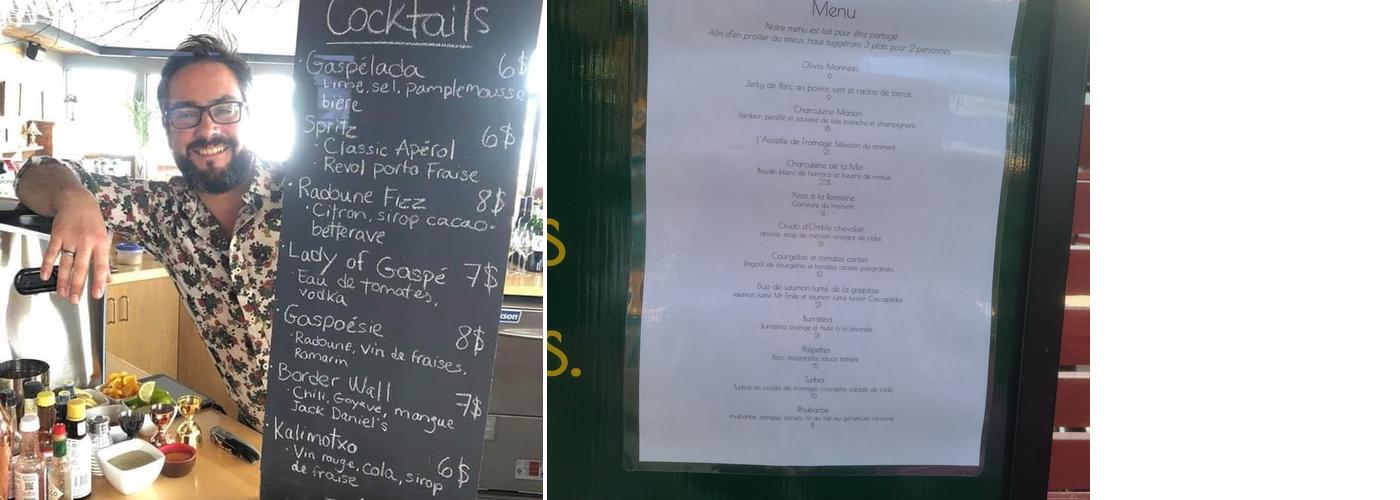 Cocktails
· Gaspélada 6$
· Lime, sel, pamplemousse
bière
Spritz 6$
· Classic Apérol
· Revol porto Fraise
· Radoune Fizz 8$
· Citron, sirop cacao-
betterave
· Lady of Gaspé 7$
· Eau de tomates,
vodka
· Gaspoésie 8$
· Radoune, vin de fraises,
Romarin
· Border Wall 7$
· Chili, Goyave, mangue
Jack Daniel's
· Kalimotxo 6$
· Vin rouge, cola, sirop
de fraise
S
S.
Menu
Notre menu est fait pour être partagé.
Afin d'en profiter au mieux, nous suggérons 3 plats pour 2 personnes
Olives Marinées
6
Jerky de Porc au poivre vert et racine de berce
9
Charcuterie Maison
Jambon persillé et saucisse de foie pistache et champignons
16
L'Assiette de Fromage Sélection du moment
21
Charcuterie de la Mer
Boudin blanc de homard, et beurre de morue
20$
Pizza à la Romaine
Garniture du moment
14
Crudo d'Omble chevalier
aronia, sirop de merisier, vinaigre de cidre
16
Courgettes et tomates cerises
Ragoût de courgettes et tomates cerises, pangrattato
12
Duo de saumon fumé de la gaspésie
saumon fumé Mr Émile et saumon fumé fumoir Cascapédia
21
Burratina
Burratina, orange et huile à la lavande
21
Polpettes
Porc, mozzarella, sauce tomate
15
Turbot
Turbot en croûte de fromage, courgette salade de radis
15
Rhubarbe
rhubarbe, tomates cerises, riz au lait au géranium citronné
11